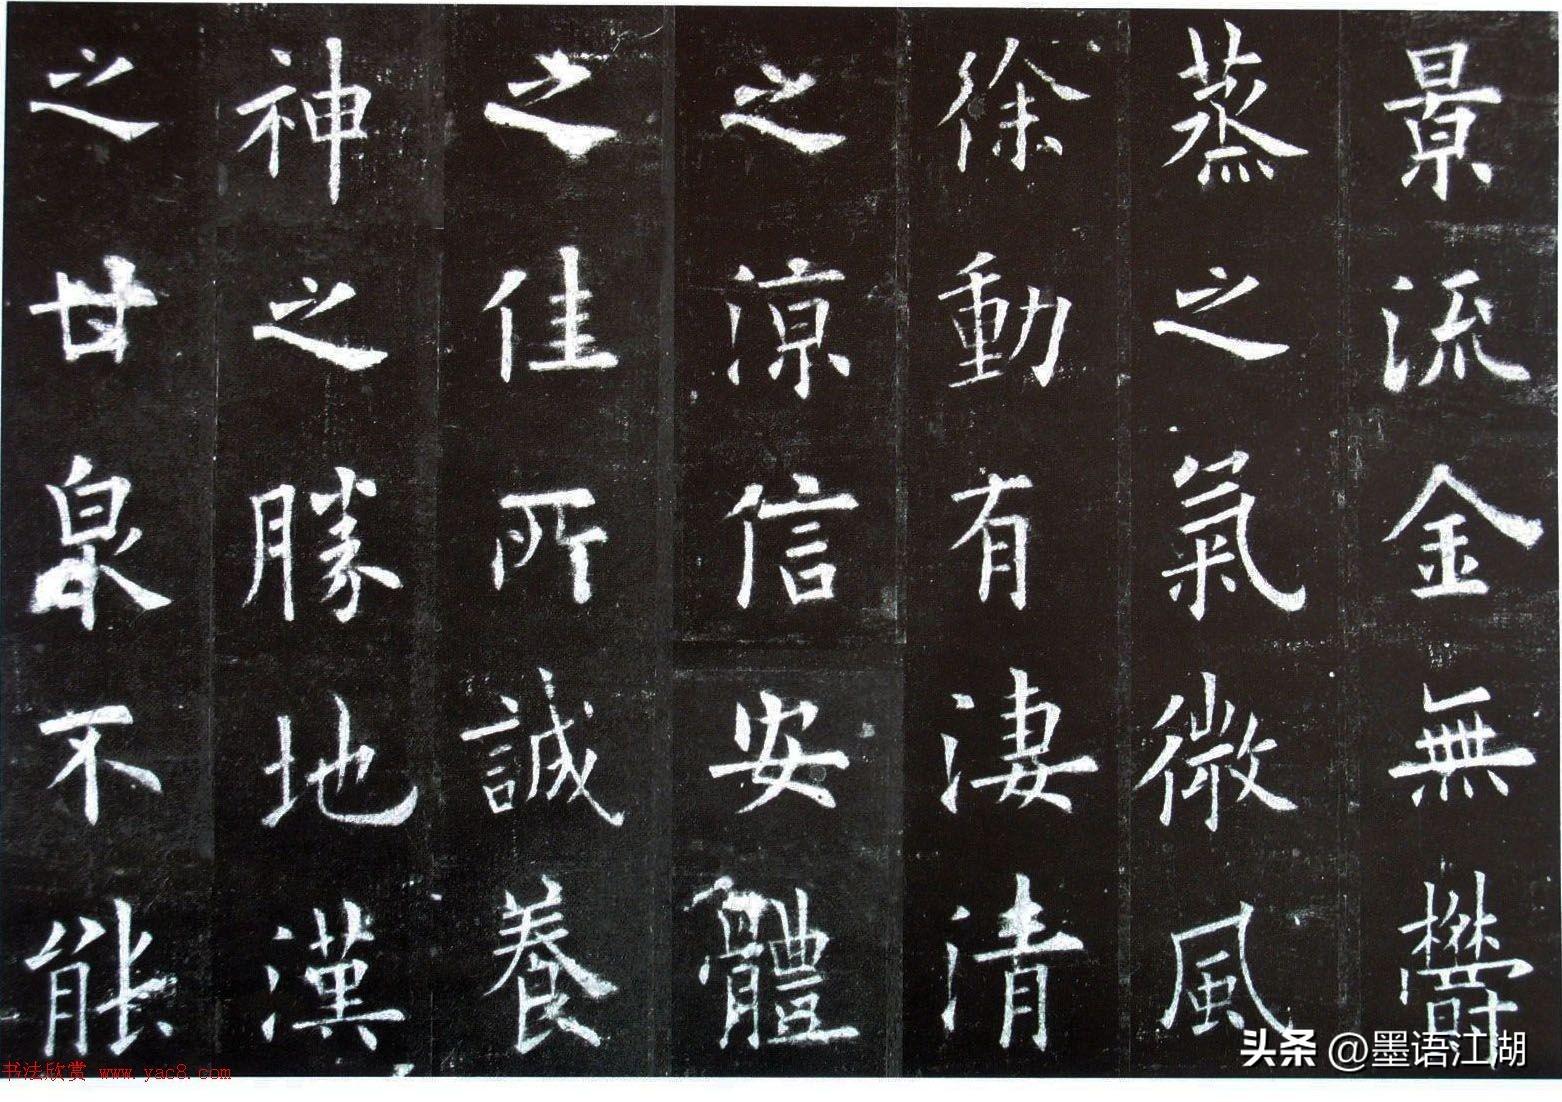 景流金無鬱
蒸之氣微風
徐動有淒清
之涼信安體
之佳所誠養
神之勝地漢
之甘泉不能
头条 @墨语江湖
书法欣赏 www.yac8.com